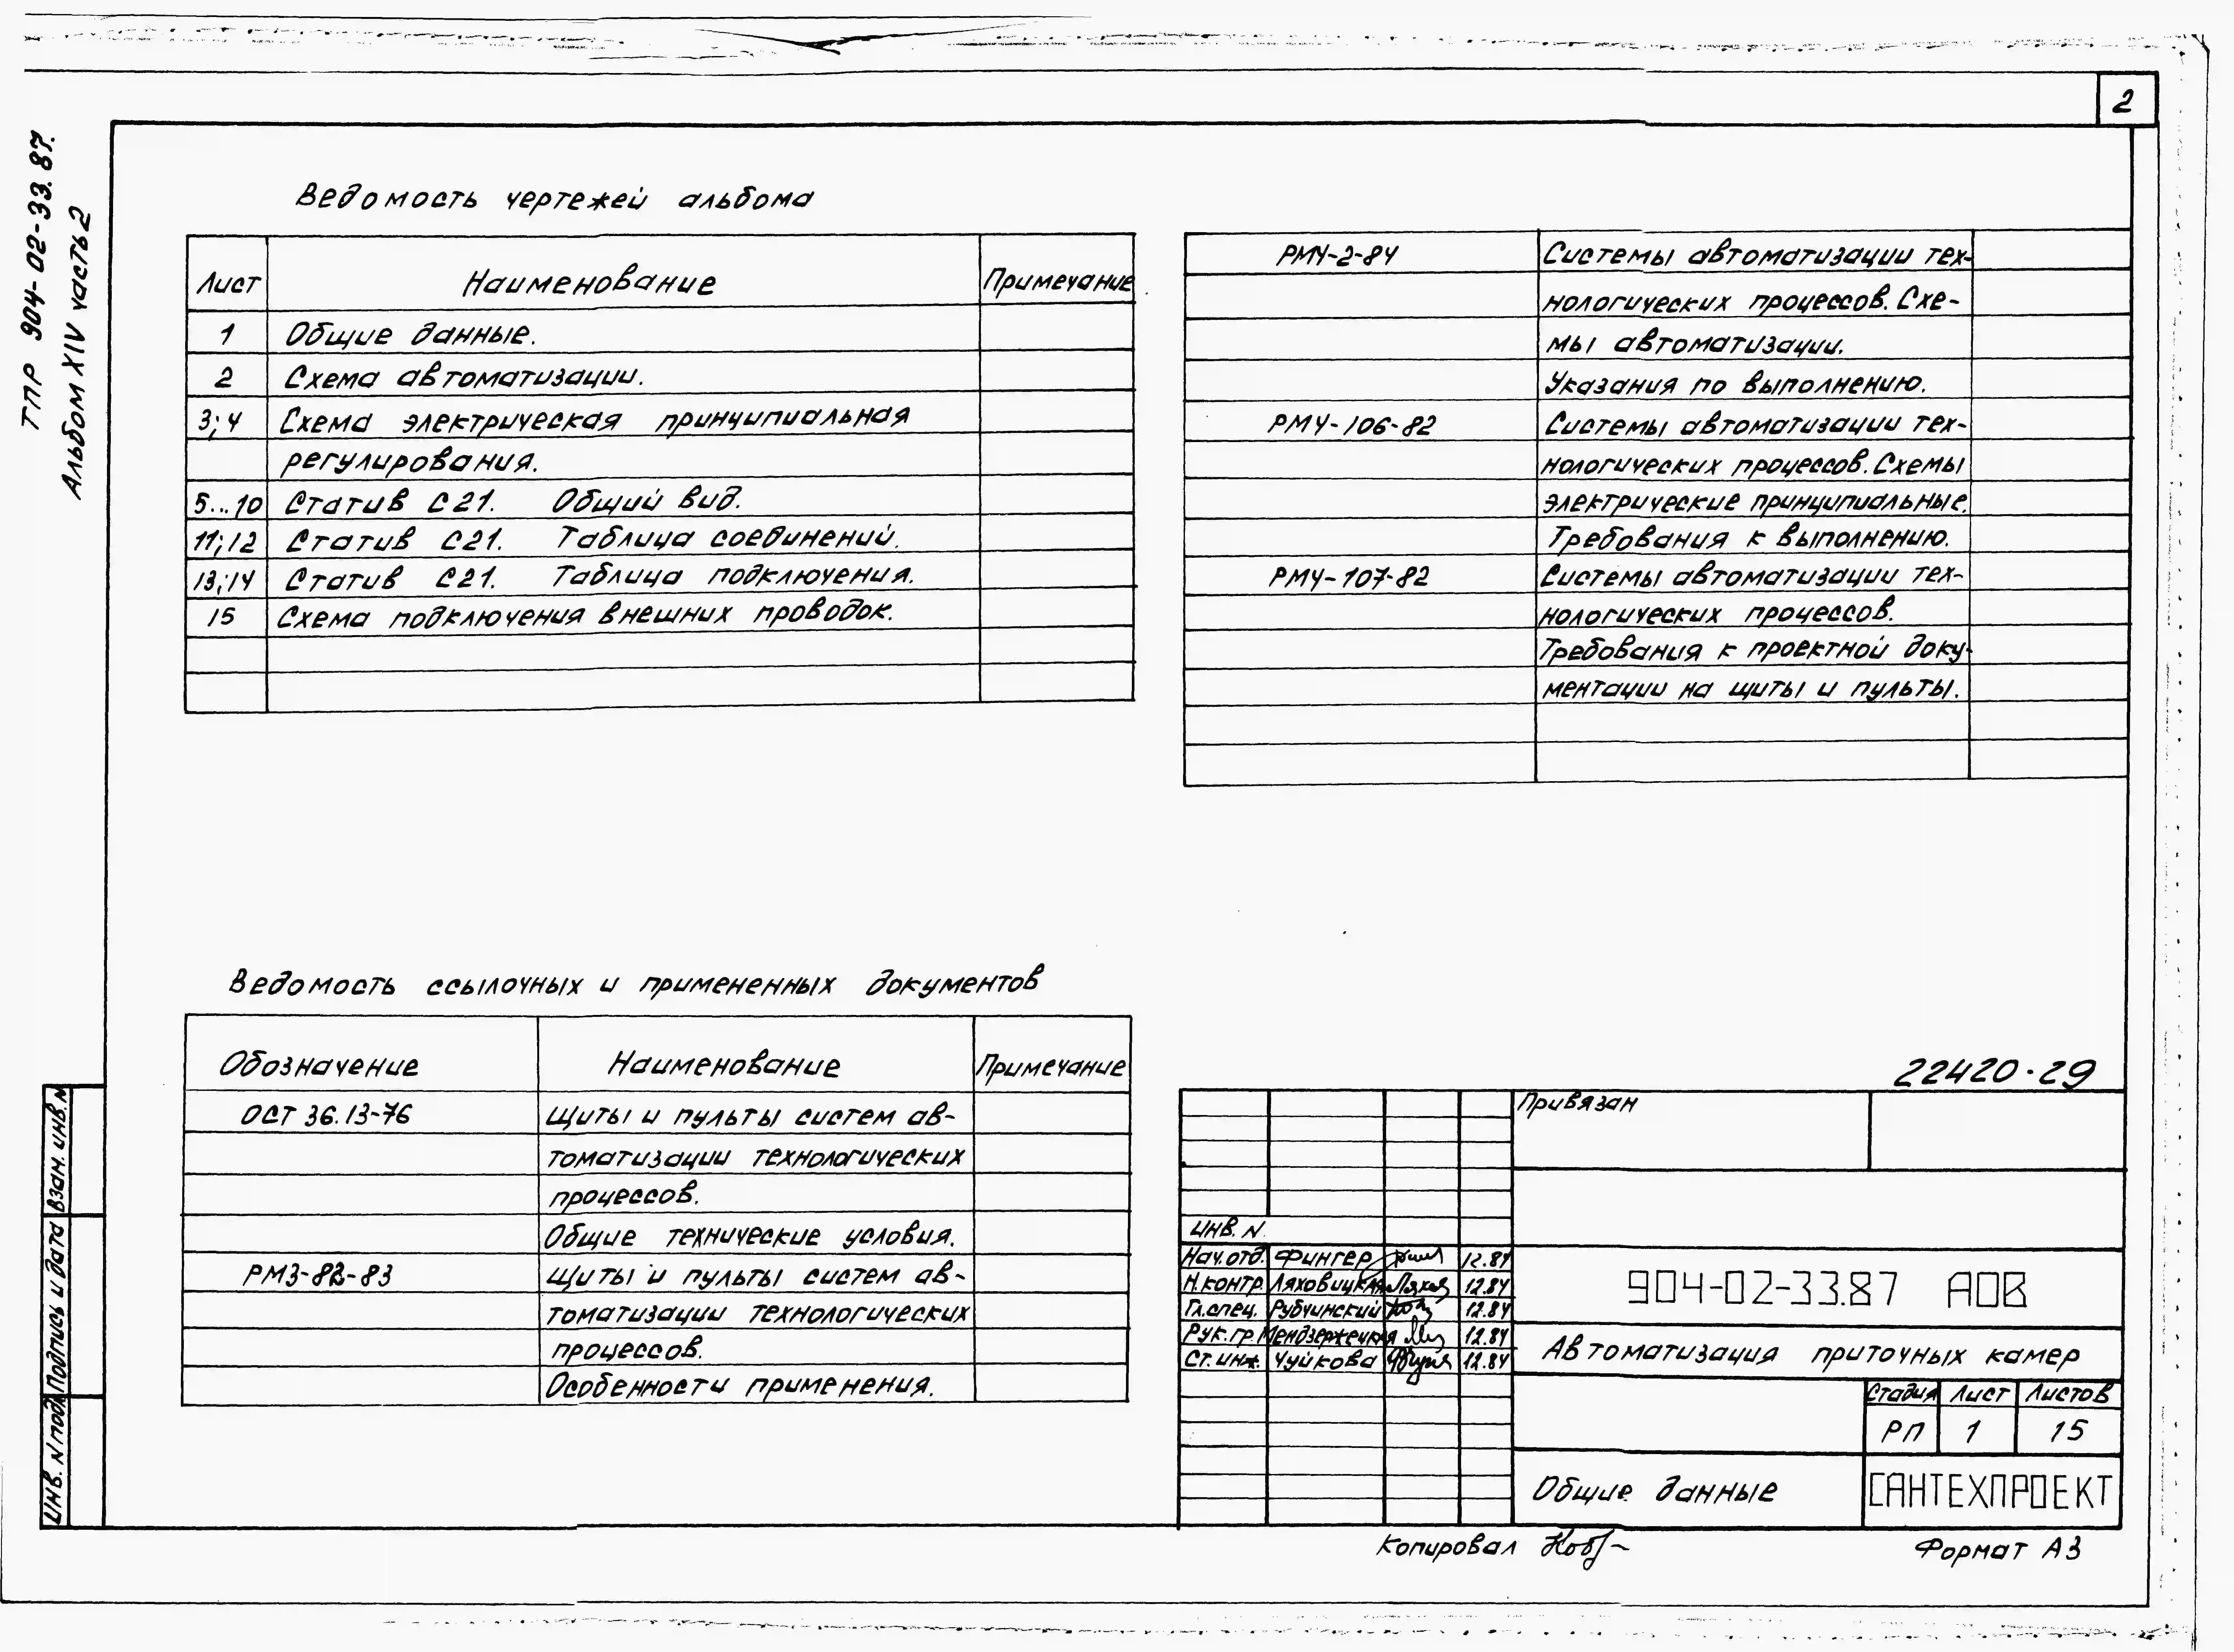 2
ТПР 904-02-33.87.
Альбом XIV часть 2
Ведомость чертежей альбома
Лист Наименование Примечание
1 Общие данные.
2 Схема автоматизации.
3; 4 Схема электрическая принципиальная
регулирования.
5...10 Статив С21. Общий вид.
11; 12 Статив С21. Таблица соединений.
13; 14 Статив С21. Таблица подключения.
15 Схема подключения внешних проводок.
РМ4-2-84 Системы автоматизации тех-
нологических процессов. Схе-
мы автоматизации.
Указания по выполнению.
РМ4-106-82 Системы автоматизации тех-
нологических процессов. Схемы
электрические принципиальные.
Требования к выполнению.
РМ4-107-82 Системы автоматизации тех-
нологических процессов.
Требования к проектной доку-
ментации на щиты и пульты.
Ведомость ссылочных и примененных документов
Обозначение Наименование Примечание
ОСТ 36.13-76 Щиты и пульты систем ав-
томатизации технологических
процессов.
Общие технические условия.
РМ3-82-83 Щиты и пульты систем ав-
томатизации технологических
процессов.
Особенности применения.
22420-29
Привязан
Инв. N
Нач.отд. Фингер 12.84
Н.контр. Ляховицкая 12.84
Гл.спец. Рубчинский 12.84
Рук.гр. Мендзержецкая 12.84
Ст.инж. Чуйкова 12.84
904-02-33.87 АОВ
Автоматизация приточных камер
Стадия Лист Листов
РП 1 15
Общие данные
САНТЕХПРОЕКТ
Инв. N подл. Подпись и дата Взам. инв. N
Копировал
Формат А3